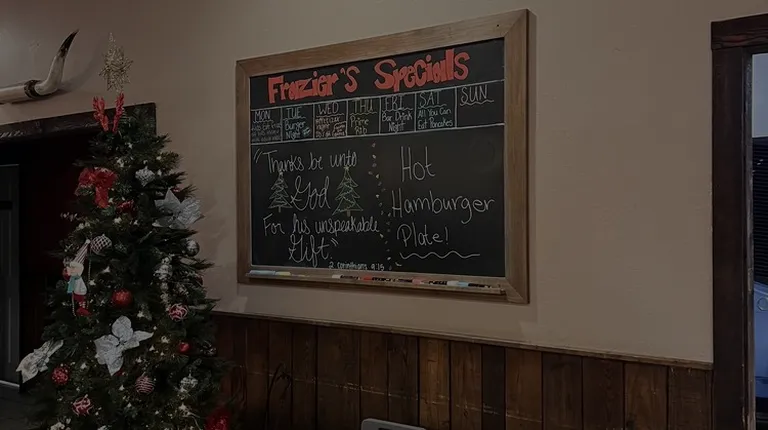 Frazier's Specials
MON
TUE
Burger
Night
WED
THU
Prime
Rib
FRI
Bar Drink
Night
SAT
All You Can
Eat Pancakes
SUN
"Thanks be unto
God
For his unspeakable
Gift"
2 Corinthians 9:15
Hot
Hamburger
Plate!